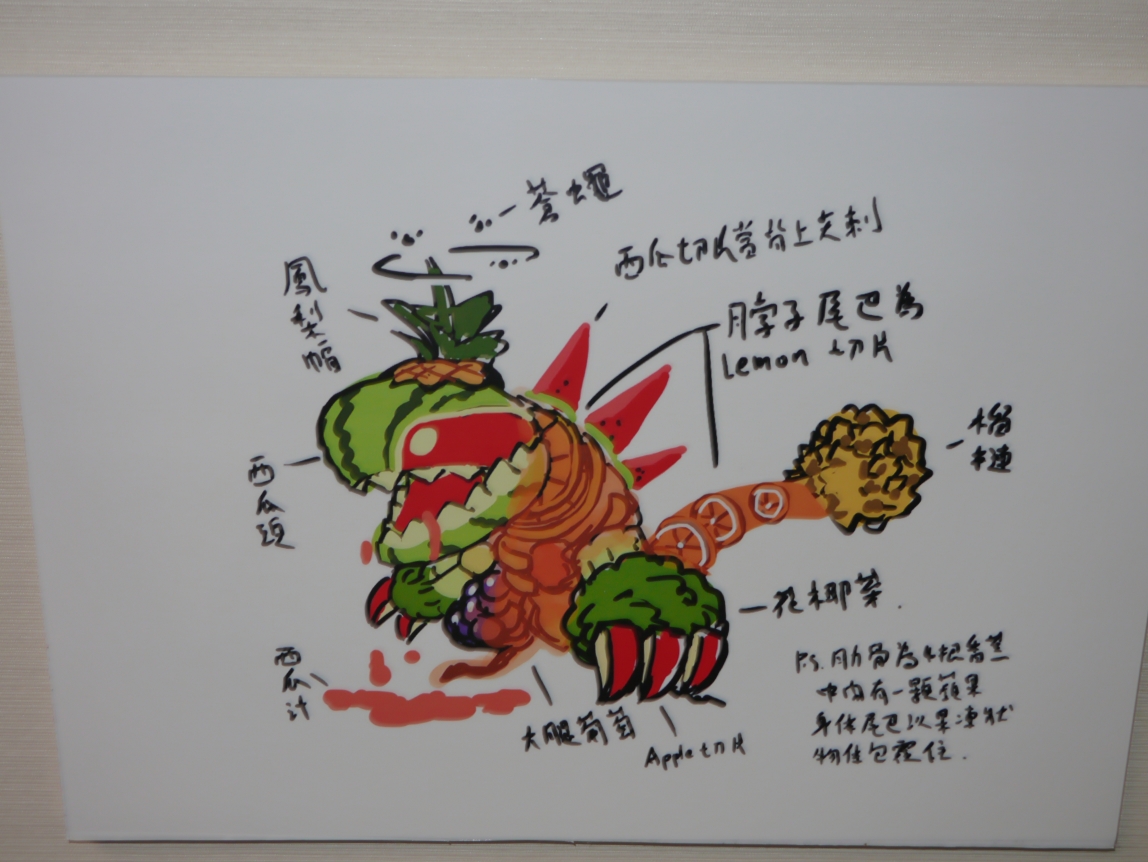 蒼蠅
西瓜切片當背上尖刺
鳳梨帽
脖子尾巴為
Lemon 切片
榴槤
西瓜頭
花椰菜.
西瓜汁
大腿葡萄
Apple切片
Ps. 肋骨為4根香蕉
中內有一顆蘋果
身体尾巴以果凍狀
物体包覆住.